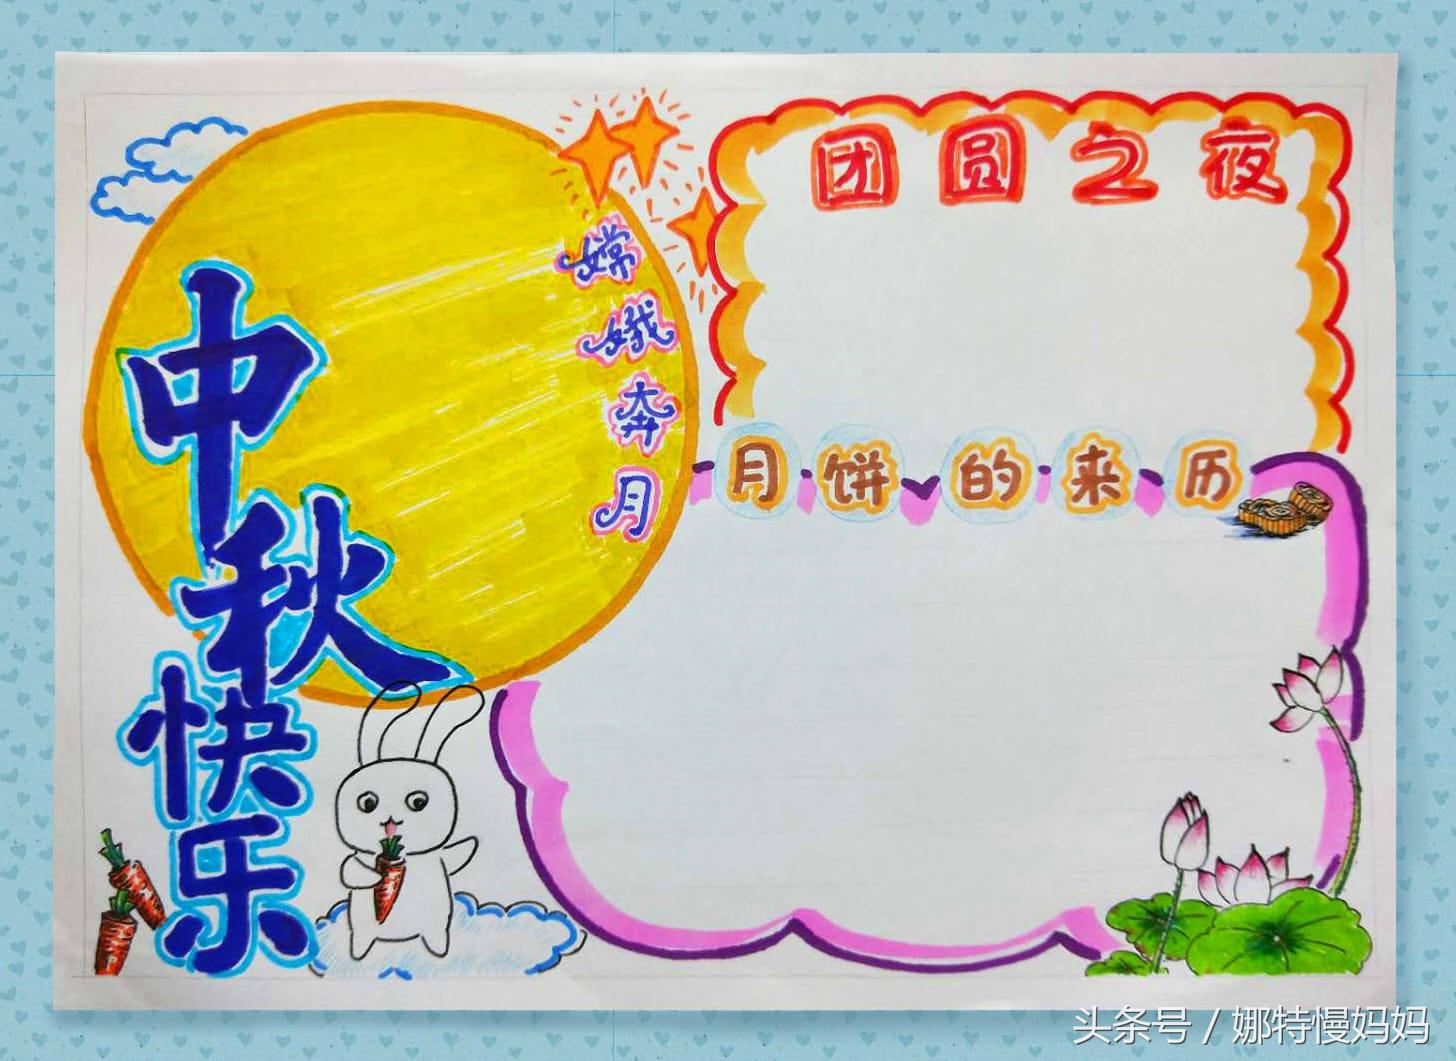 中秋
快乐
嫦娥奔月
团圆之夜
月饼的来历
头条号 / 娜特慢妈妈